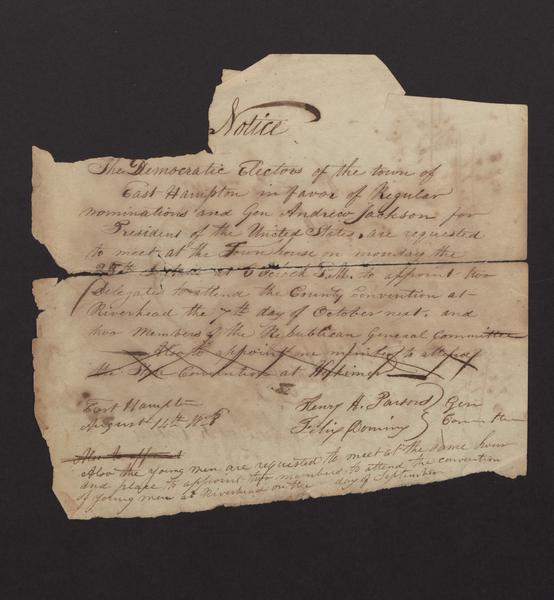 Notice
The Democratic Electors of the town of
East Hampton in favor of Regular
nominations and Gen Andrew Jackson for
President of the United States, are requested
to meet at the Town house on monday the
at Oclock P.M. to appoint two
Delegates to attend the County Convention at
Riverhead the 7th day of October next, and
two Members of the Republican General Committee
Also to appoint one to attend
the State Convention at
East Hampton
August 14th
Henry H. Parsons } Gen
Felix Dominy } Committee
Also to
Also the young men are requested to meet at the same hour
and place to appoint two members to attend the convention
of young men at Riverhead on the day of September